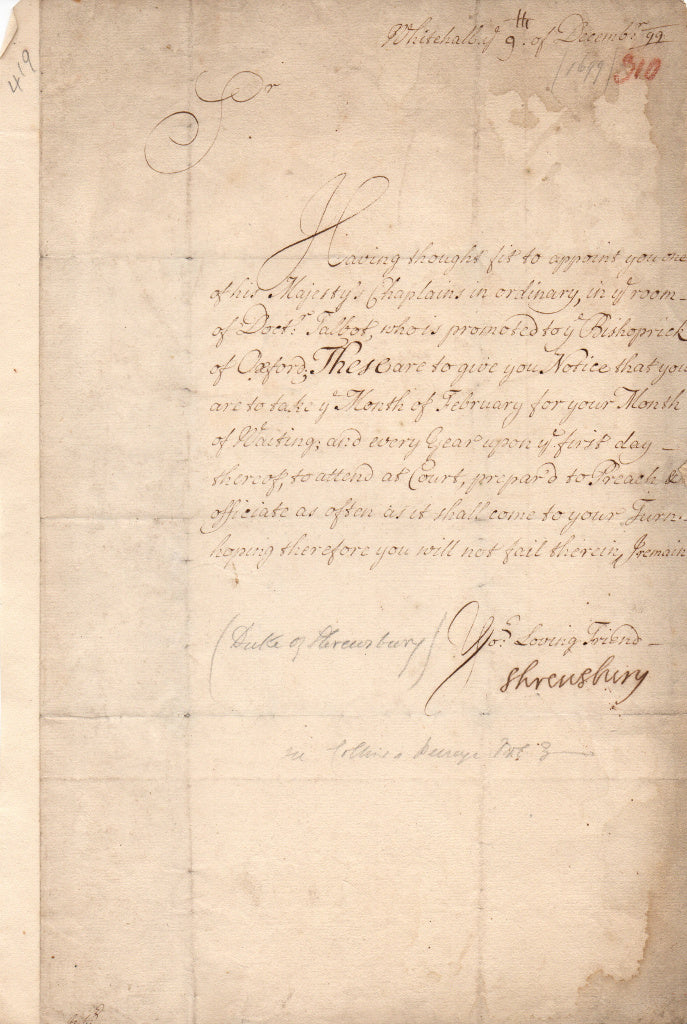 419
Whitehall yᵉ 9ᵗʰ. of Decembʳ. 99
(1699) 310
Sʳ
Having thought fit to appoint you one
of his Majesty's Chaplains in ordinary, in yᵉ room
of Doctʳ. Talbot, who is promoted to yᵉ Bishoprick
of Oxford; These are to give you Notice that you
are to take yᵉ Month of February for your Month
of Waiting; and every Year upon yᵉ first day
thereof, to attend at Court, prepar'd to Preach &
officiate as often as it shall come to your Turn.
hoping therefore you will not fail therein, I remain
(Duke of Shrewsbury) Yoʳ. Loving Friend
Shrewsbury
Collins's Peerage